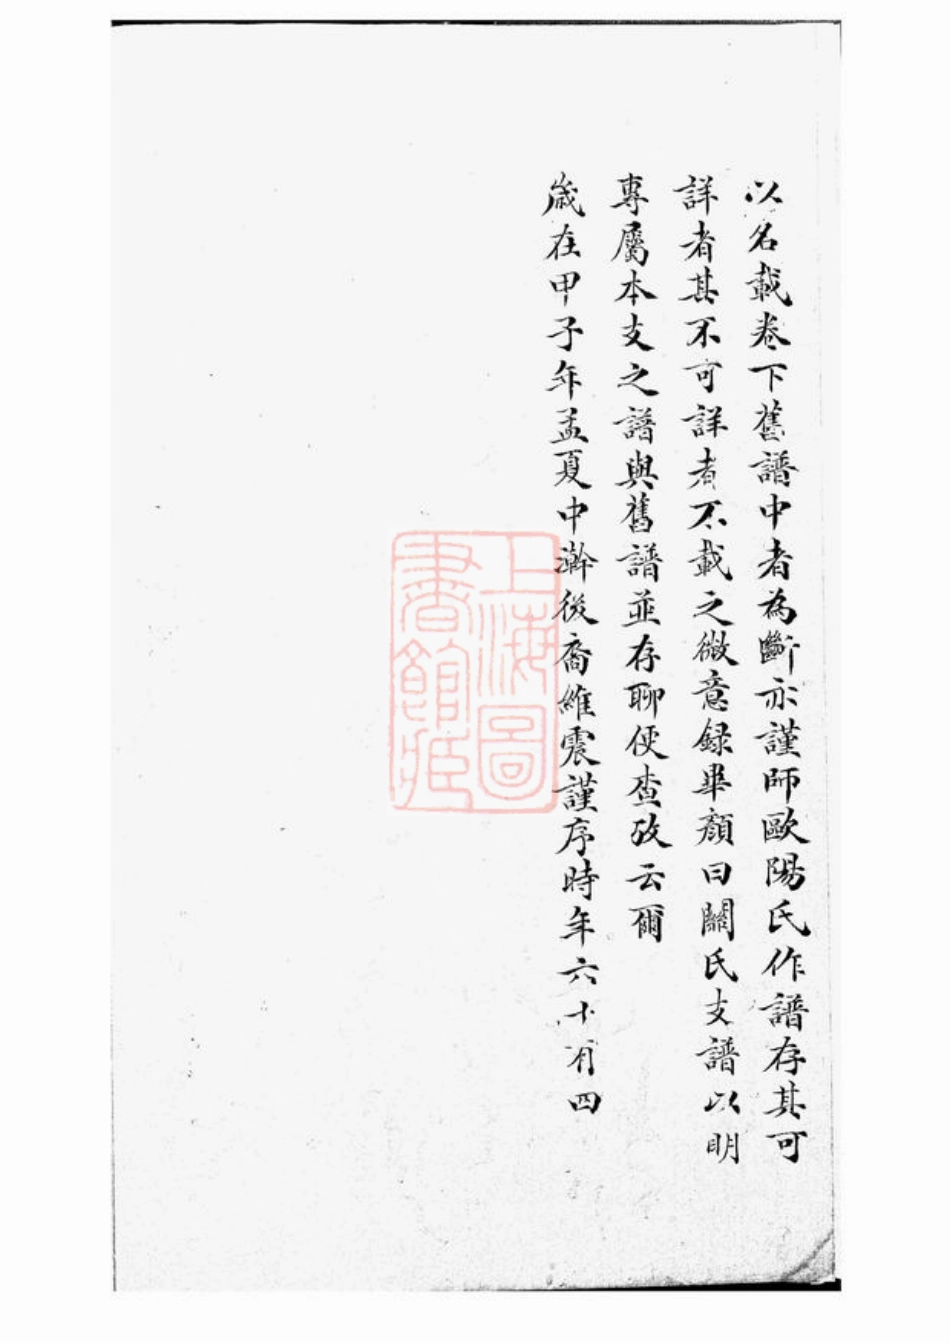 以名載卷下舊譜中者為斷亦謹師歐陽氏作譜存其可
詳者其不可詳者不載之微意録畢顏曰關氏支譜以明
專屬本支之譜與舊譜並存聊便查攷云爾
歲在甲子年孟夏中澣後裔維震謹序時年六十有四
上海圖
書館藏